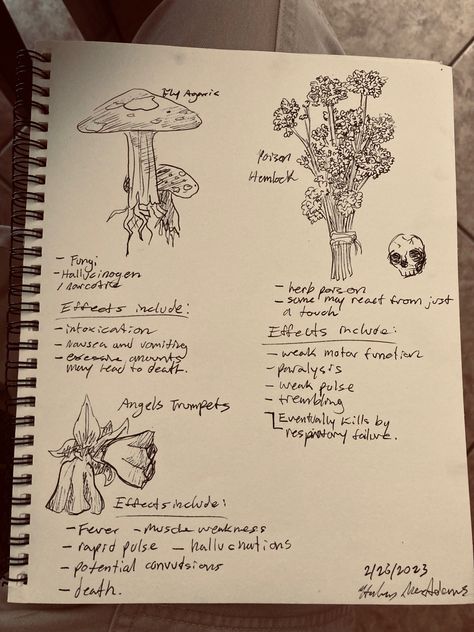 Fly Agaric
- Fungi
- Hallucinogen
/narcotic
Effects include:
- intoxication
- nausea and vomiting
- excessive amounts
may lead to death.
Poison
Hemlock
- herb poison
- some may react from just
a touch
Effects include:
- weak motor function
- paralysis
- weak pulse
- trembling
Eventually kills by
respiratory failure.
Angels Trumpets
Effects include:
- Fever - Muscle weakness
- rapid pulse - hallucinations
- potential convulsions
- death.
2/26/2023